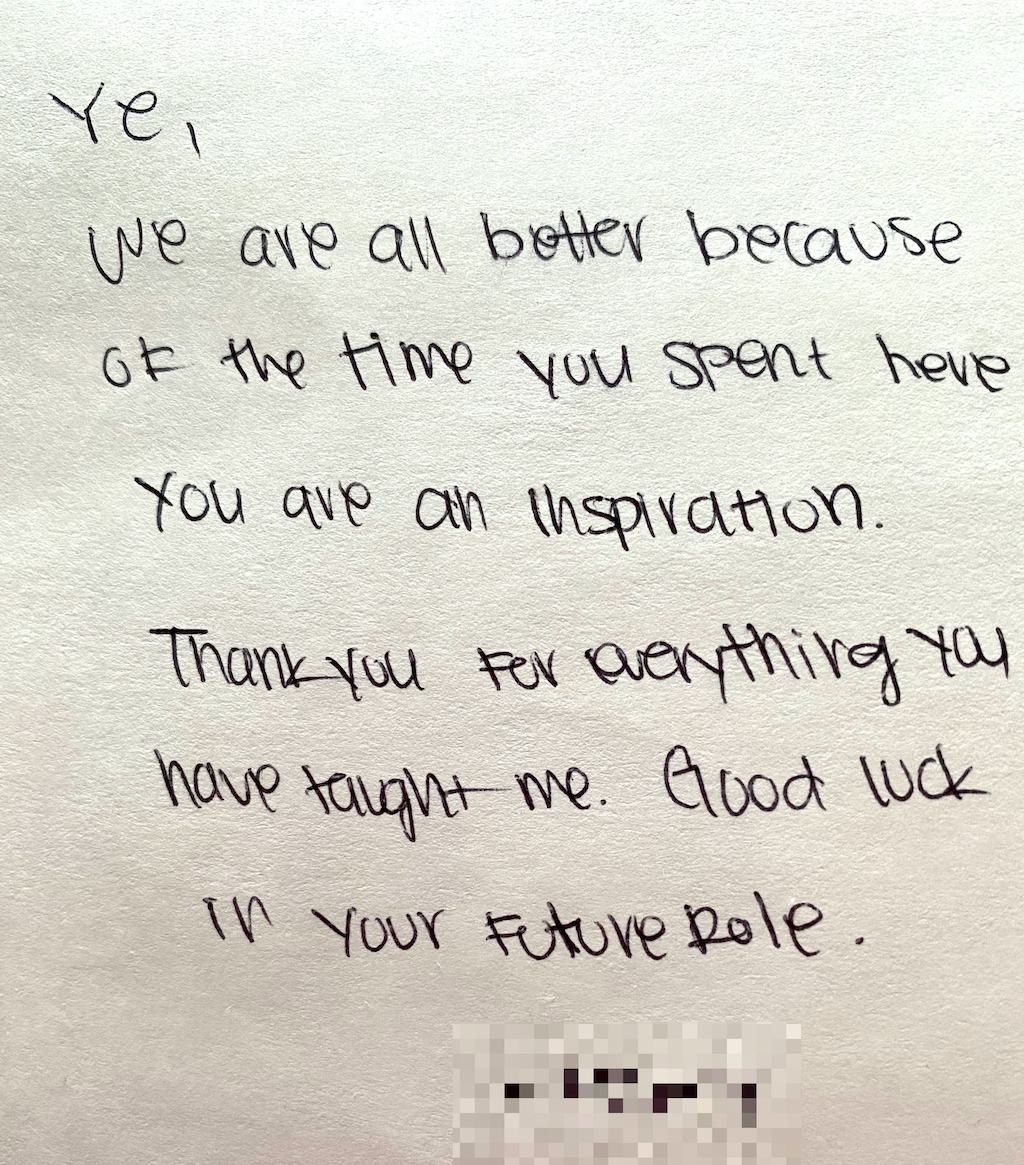 Ye,
We are all better because
of the time you spent here
You are an inspiration.
Thank you for everything you
have taught me. Good luck
in your future Role.